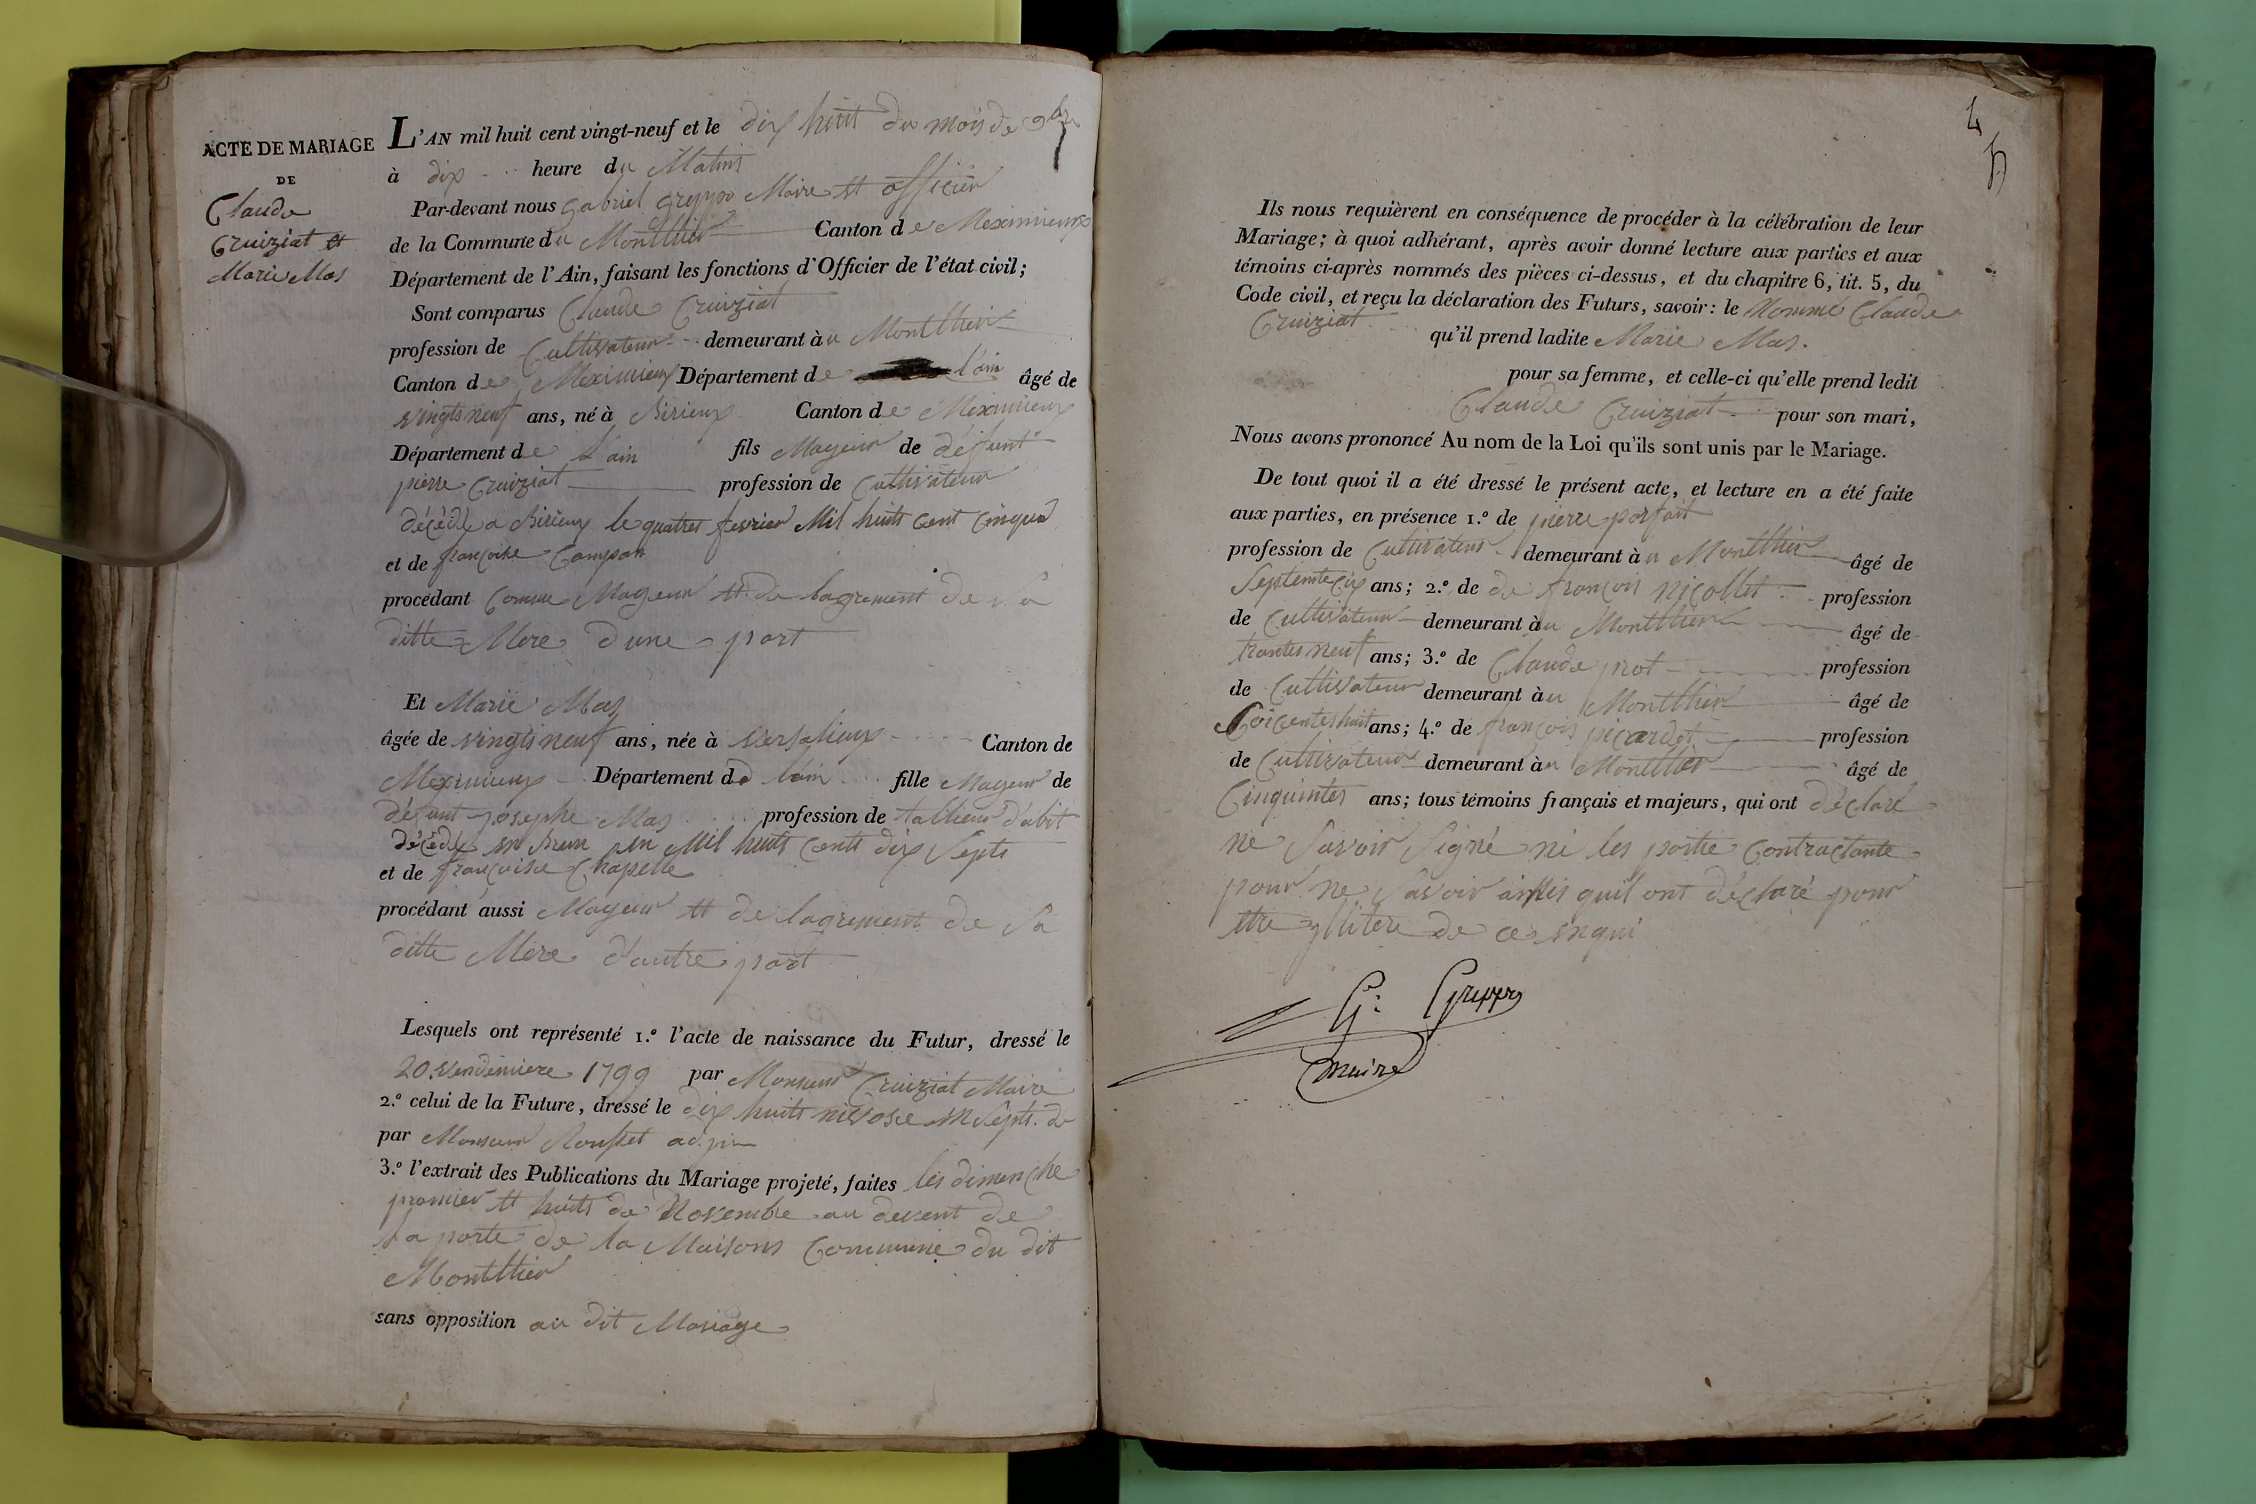 ACTE DE MARIAGE
DE
Claude
Cruiziat et
Marie Mas
L'AN mil huit cent vingt-neuf et le dix huit du mois de 9bre
à dix heure du Matins
Par-devant nous gabriel greppo Maire et officier
de la Commune du Montthier Canton de Meximieux
Département de l'Ain, faisant les fonctions d'Officier de l'état civil;
Sont comparus Claude Cruiziat
profession de Cultivateur demeurant à au Montthier
Canton de Meximieux Département de l'ain âgé de
vingts neuf ans, né à Birieux Canton de Meximieux
Département de L'ain fils Mayeur de défunt
pierre Cruiziat profession de Cultivateur
décédé a Birieux le quatres fevrier Mil huits cent cinqua
et de françoise Compan
procédant Comme Mayeur et de lagrement de Sa
ditte Mere d'une part
Et Marie Mas
âgée de vingts neuf ans, née à Versalieux Canton de
Meximieux Département de l'ain fille Mayeur de
défunt josephe Mas profession de tallieur d'abit
décédé en Mil huits cents dix Septs
et de françoise Chapelle
procédant aussi Mayeur et de lagrement de Sa
ditte Mere d'autre part
Lesquels ont représenté 1.º l'acte de naissance du Futur, dressé le
20 vendemiere 1799 par Monsieur Cruiziat Maire
2.º celui de la Future, dressé le dix huits nivose en Septs de
par Monsieur Rousset adjoin
3.º l'extrait des Publications du Mariage projeté, faites les dimenche
premier et huits de Novembre au devent de
la porte de la Maisons Commune du dit
Montthier
sans opposition au dit Mariage
4
Ils nous requièrent en conséquence de procéder à la célébration de leur
Mariage; à quoi adhérant, après avoir donné lecture aux parties et aux
témoins ci-après nommés des pièces ci-dessus, et du chapitre 6, tit. 5, du
Code civil, et reçu la déclaration des Futurs, savoir: le Nommé Claude
Cruiziat qu'il prend ladite Marie Mas.
pour sa femme, et celle-ci qu'elle prend ledit
Claude Cruiziat pour son mari,
Nous avons prononcé Au nom de la Loi qu'ils sont unis par le Mariage.
De tout quoi il a été dressé le présent acte, et lecture en a été faite
aux parties, en présence 1.º de pierre parfait
profession de Cultivateur demeurant à au Montthier âgé de
ans; 2.º de de françois nicollet profession
de Cultivateur demeurant à au Montthier âgé de
trantes neuf ans; 3.º de Claude prot profession
de Cultivateur demeurant à au Montthier âgé de
Soicentes huit ans; 4.º de françois picardet profession
de Cultivateur demeurant à au Montthier âgé de
Cinquintes ans; tous témoins français et majeurs, qui ont déclaré
ne Savoir Signé ni les partie Contractante
pour ne Savoir ainsis quil ont déclaré pour
etre illitere de ce enqui
G: Greppo
maire